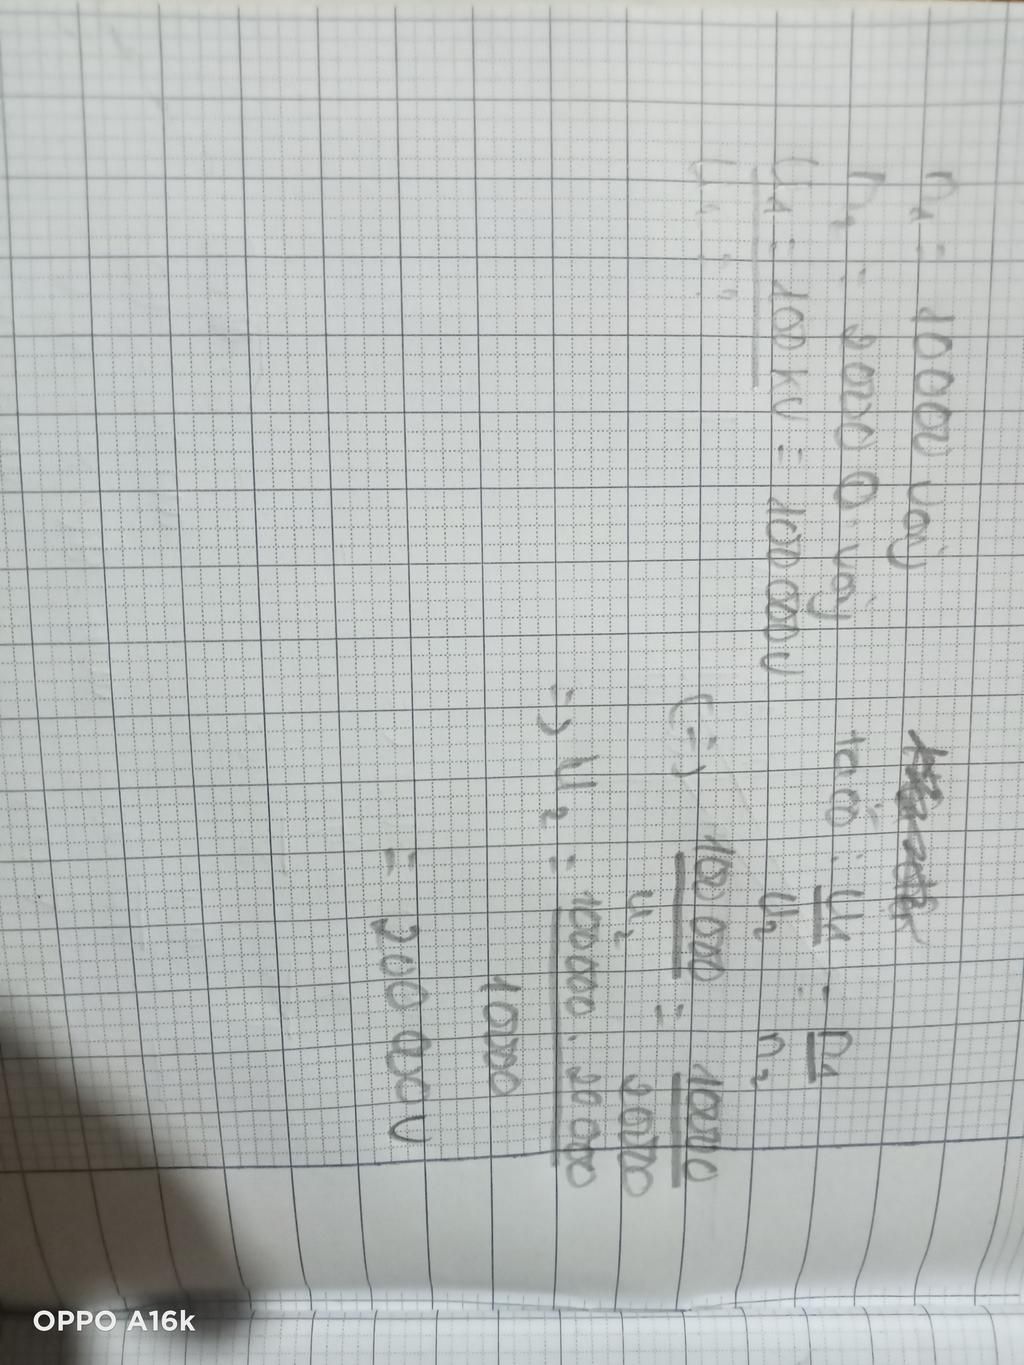 n1 = 10000 vòng
n2 = 20000 vòng
U1 = 100 KV = 100 000 V
ta có: U1 = n1
U2 n2
(=) 100 000 = 10000
U2 20000
=> U2 = 100000 . 20 000
10000
= 200 000 V
OPPO A16k